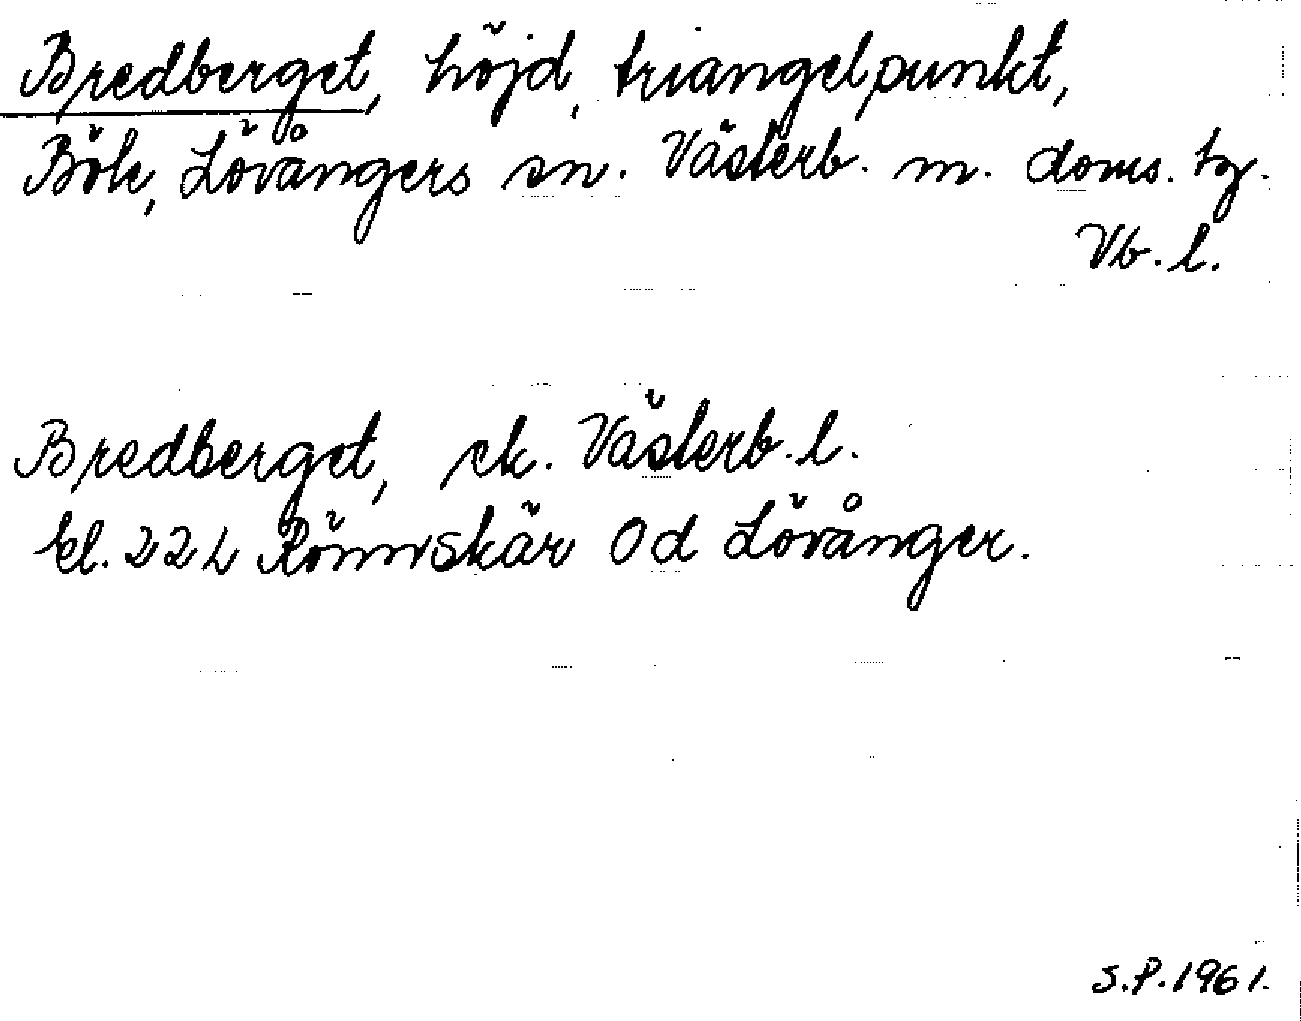 Bredberget, höjd, triangelpunkt,
Böle, Lövångers sn. Västerb. m. doms. tg.
Vb. l.
Bredberget, ek. Västerb. l.
bl. 22 L Rönnskär Od Lövånger.
S.P. 1961.